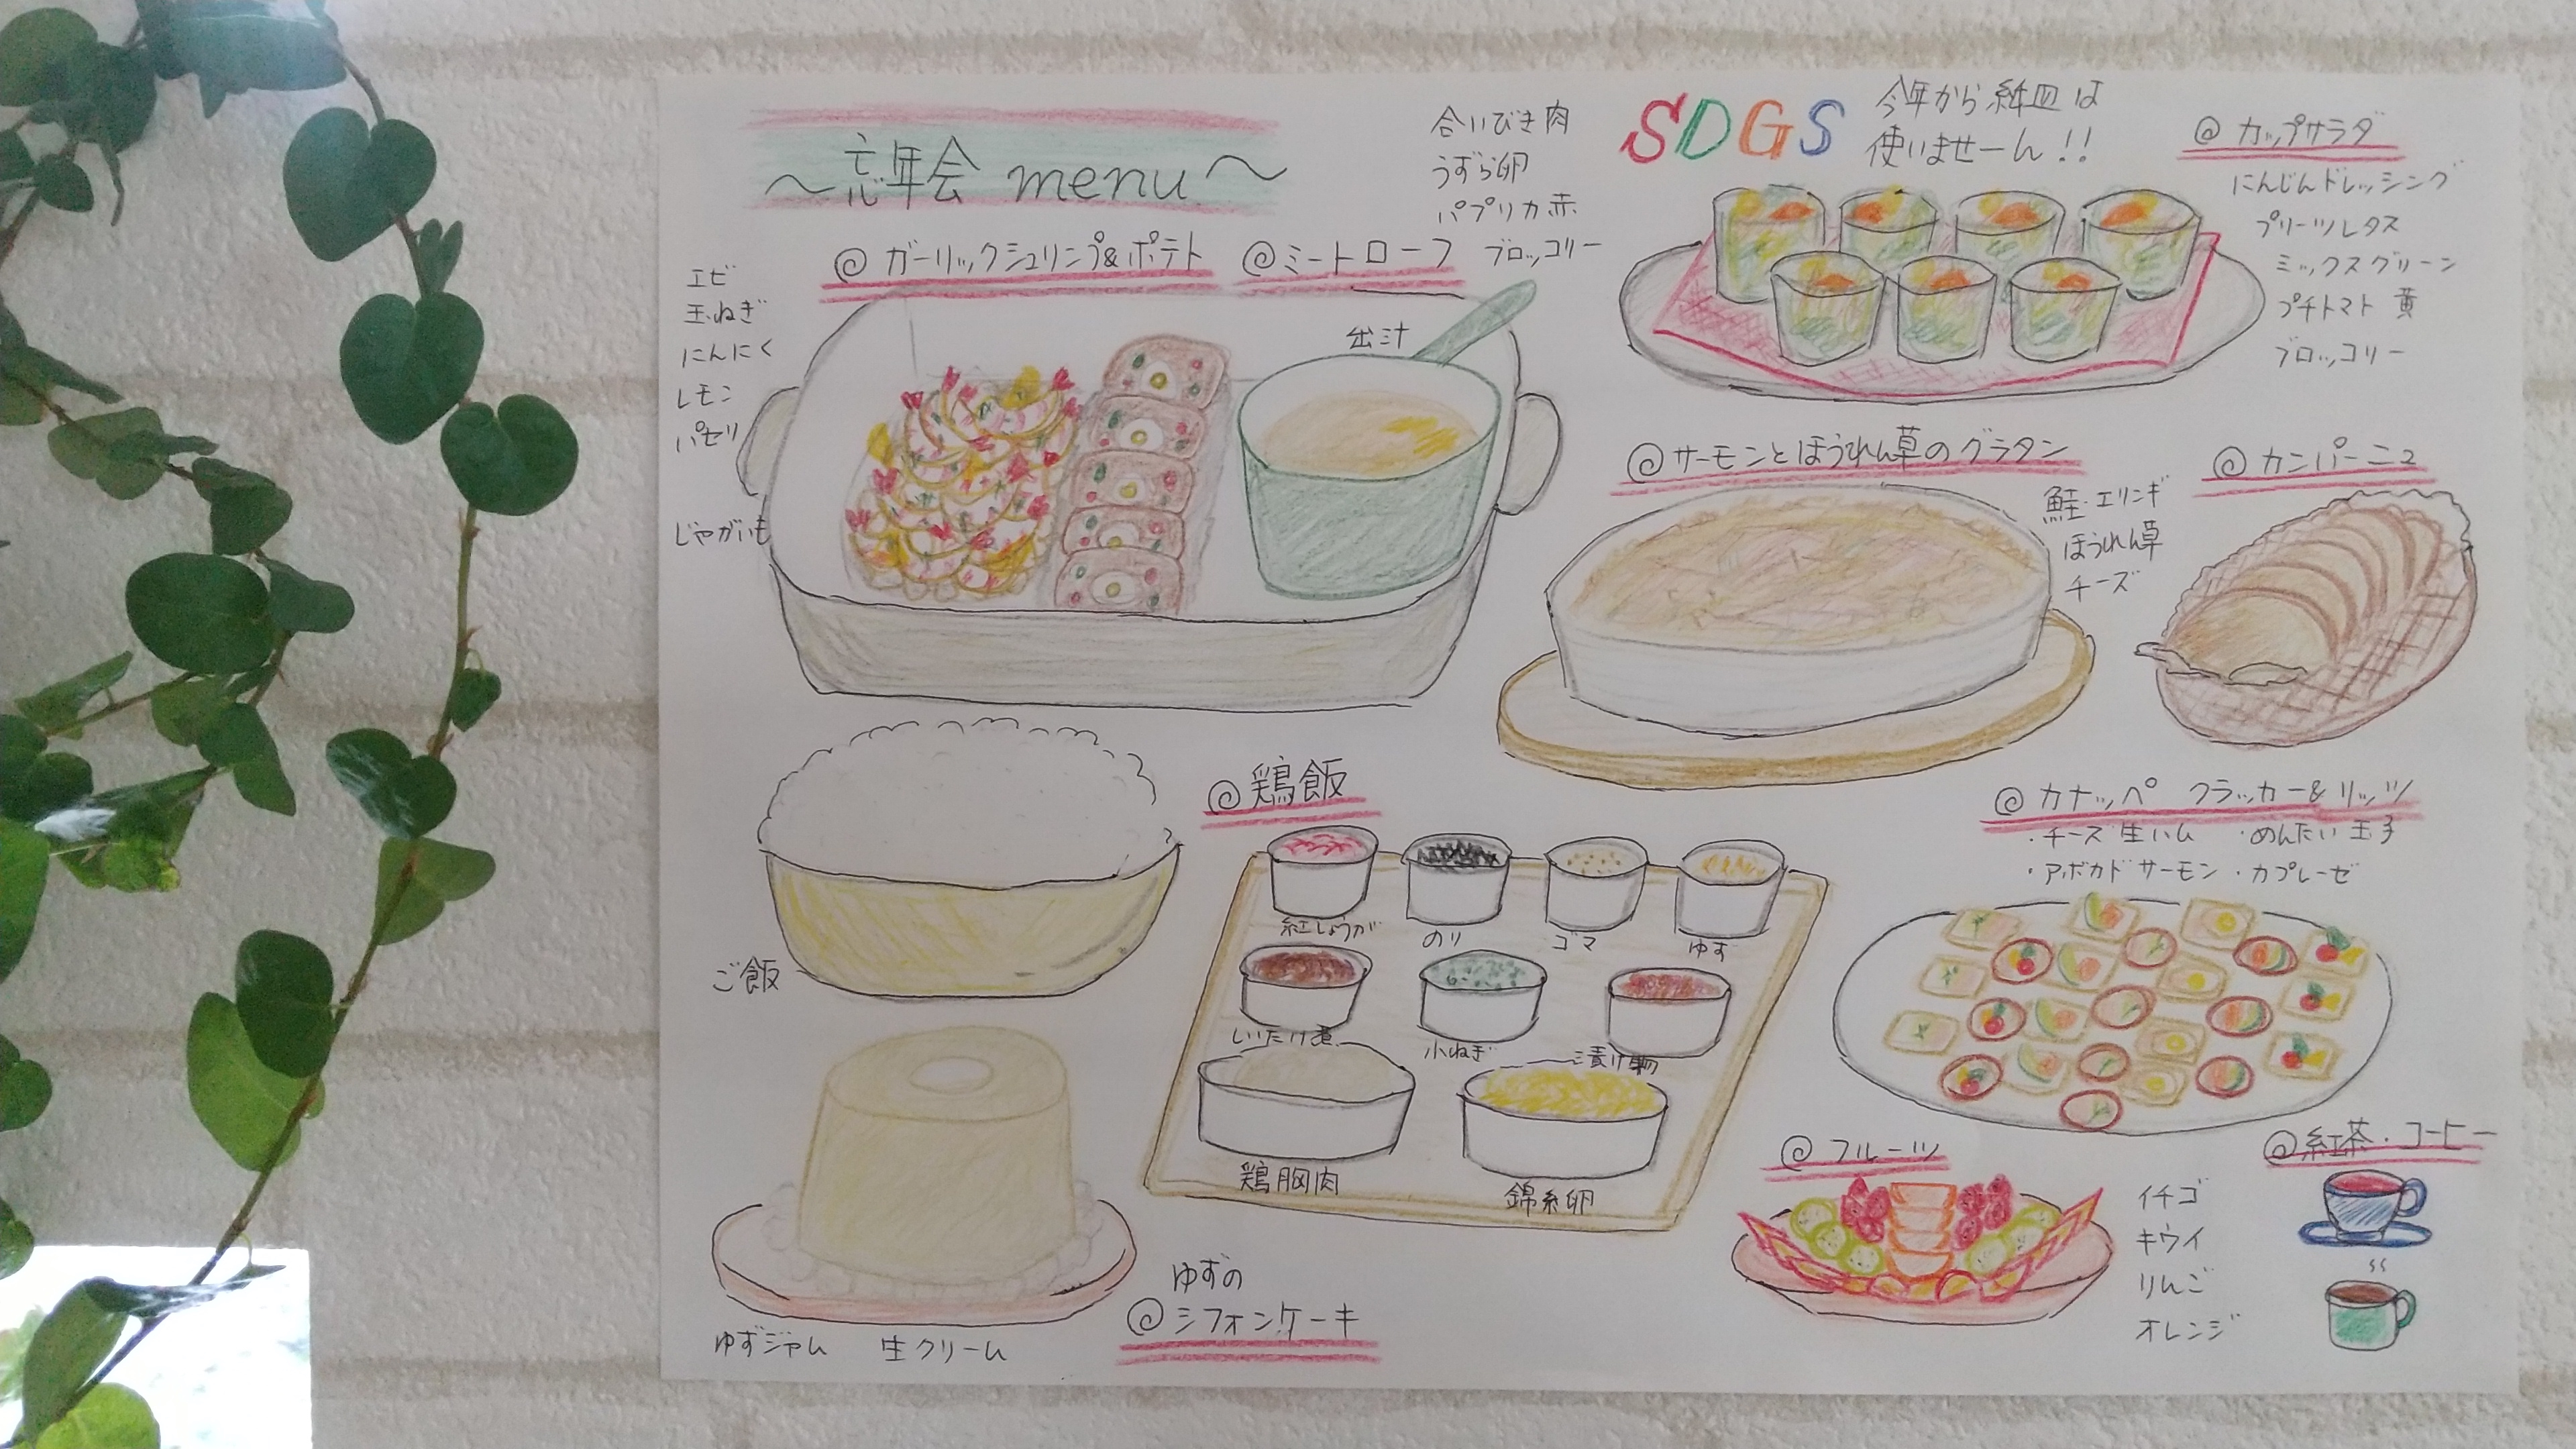 ～忘年会 menu～
合いびき肉
うずら卵
パプリカ赤
ブロッコリー
SDGS
今年から紙皿は
使いませーん!!
@ カップサラダ
にんじんドレッシング
プリーツレタス
ミックスグリーン
プチトマト 黄
ブロッコリー
@ ガーリックシュリンプ&ポテト
@ミートローフ
エビ
玉ねぎ
にんにく
レモン
パセリ
じゃがいも
出汁
@サーモンとほうれん草のグラタン
鮭・エリンギ
ほうれん草
チーズ
@ カンパーニュ
@鶏飯
ご飯
紅しょうが
のり
ゴマ
ゆず
しいたけ煮
小ねぎ
漬け物
鶏胸肉
錦糸卵
@ カナッペ クラッカー&リッツ
・チーズ生ハム ・めんたい玉子
・アボカドサーモン ・カプレーゼ
ゆずの
@シフォンケーキ
ゆずジャム 生クリーム
@ フルーツ
イチゴ
キウイ
りんご
オレンジ
@紅茶・コーヒー